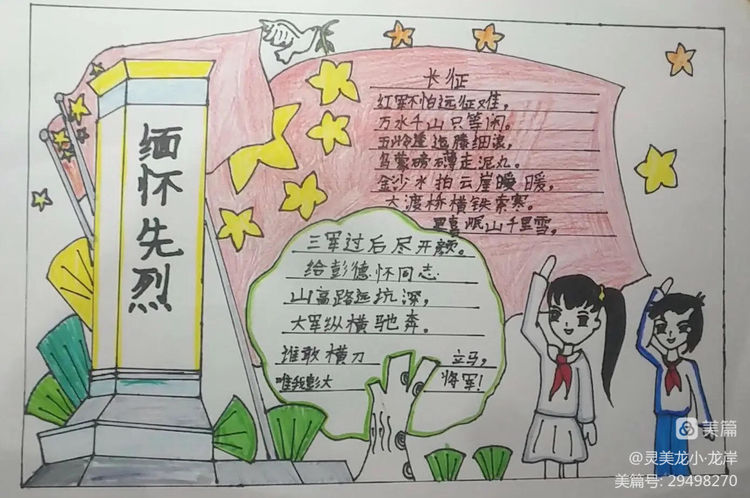 缅怀先烈
长征
红军不怕远征难，
万水千山只等闲。
五岭逶迤腾细浪，
乌蒙磅礴走泥丸。
金沙水拍云崖暖暖，
大渡桥横铁索寒。
更喜岷山千里雪，
三军过后尽开颜。
给彭德怀同志
山高路远坑深，
大军纵横驰奔。
谁敢横刀立马，
唯我彭大将军！
美篇
@灵美龙小·龙岸
美篇号: 29498270